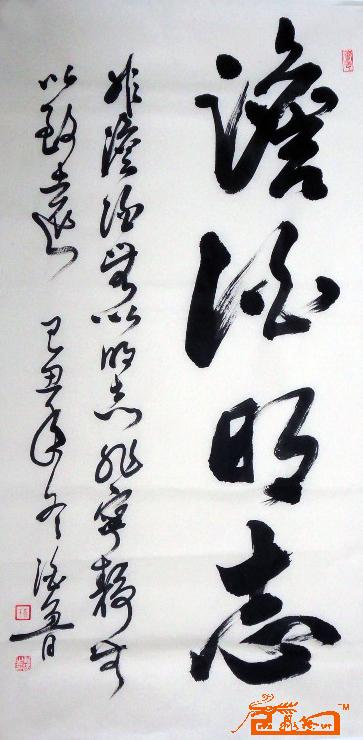 澹泊明志
非澹泊无以明志非宁静无
以致远
己丑年冬